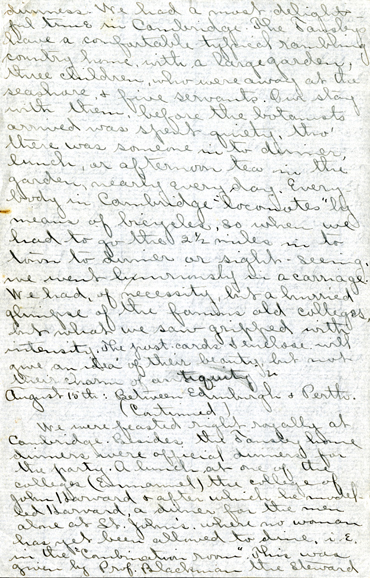 We had a most delight-
ful time in Cambridge. The Tansleys
have a comfortable typical rambling
country home, with a large garden,
three children, who were away at the
seashore & five servants. Our stay
with them, before the botanists
arrived was spent quietly, tho'
there was someone in to dinner,
lunch, or afternoon tea in the
garden, nearly every day. Every-
body in Cambridge "locomotes" by
means of bicycles, so when we
had to go the 2½ miles in to
town to dinner or sight-seeing,
we went luxuriously in a carriage.
We had, of necessity, but a hurried
glimpse of the famous old colleges,
but what we saw gripped with
intensity. The post-cards I enclose will
give an idea of their beauty, but not
their charm of antiquity
August 10th: Between Edinburgh & Perth.
(Continued)
We were feasted right royally at
Cambridge. Besides the Tansley home
dinners were official dinners for
the party. A lunch at one of the
colleges (Emmanuel) the college of
John Harvard & after which he model-
led Harvard, a dinner for the men
alone at St. John's, where no woman
has yet been allowed to dine, i.e.
in the "Combination room". This was
given by Prof. Blackman the steward